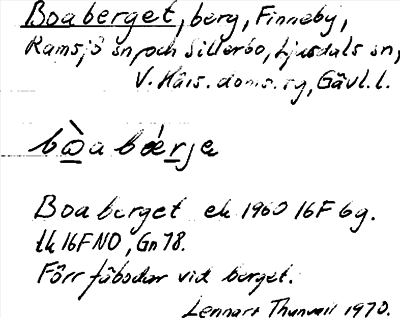 Boaberget, berg, Finneby,
Ramsjö sn, och Sillerbo, Ljusdals sn,
V. Häls. doms. sg, Gävl. l.
bòa bǽrje
Boaberget ek 1960 16F 6g.
tk 16F NO, Gn 78.
Förr fäbodar vid berget.
Lennart 1970.